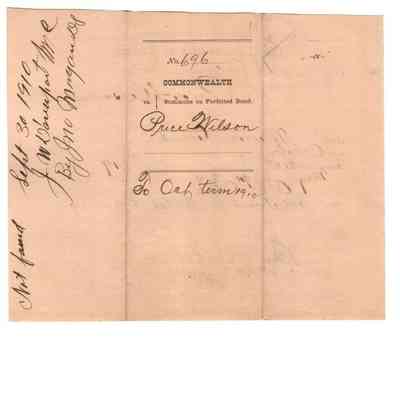 No. 696
COMMONWEALTH
vs. } Summons on Forfeited Bond.
Price Wilson
To Oct term 1910
Not found Sept 30 1910
J. W. Davenport
By Jno Morgan DS